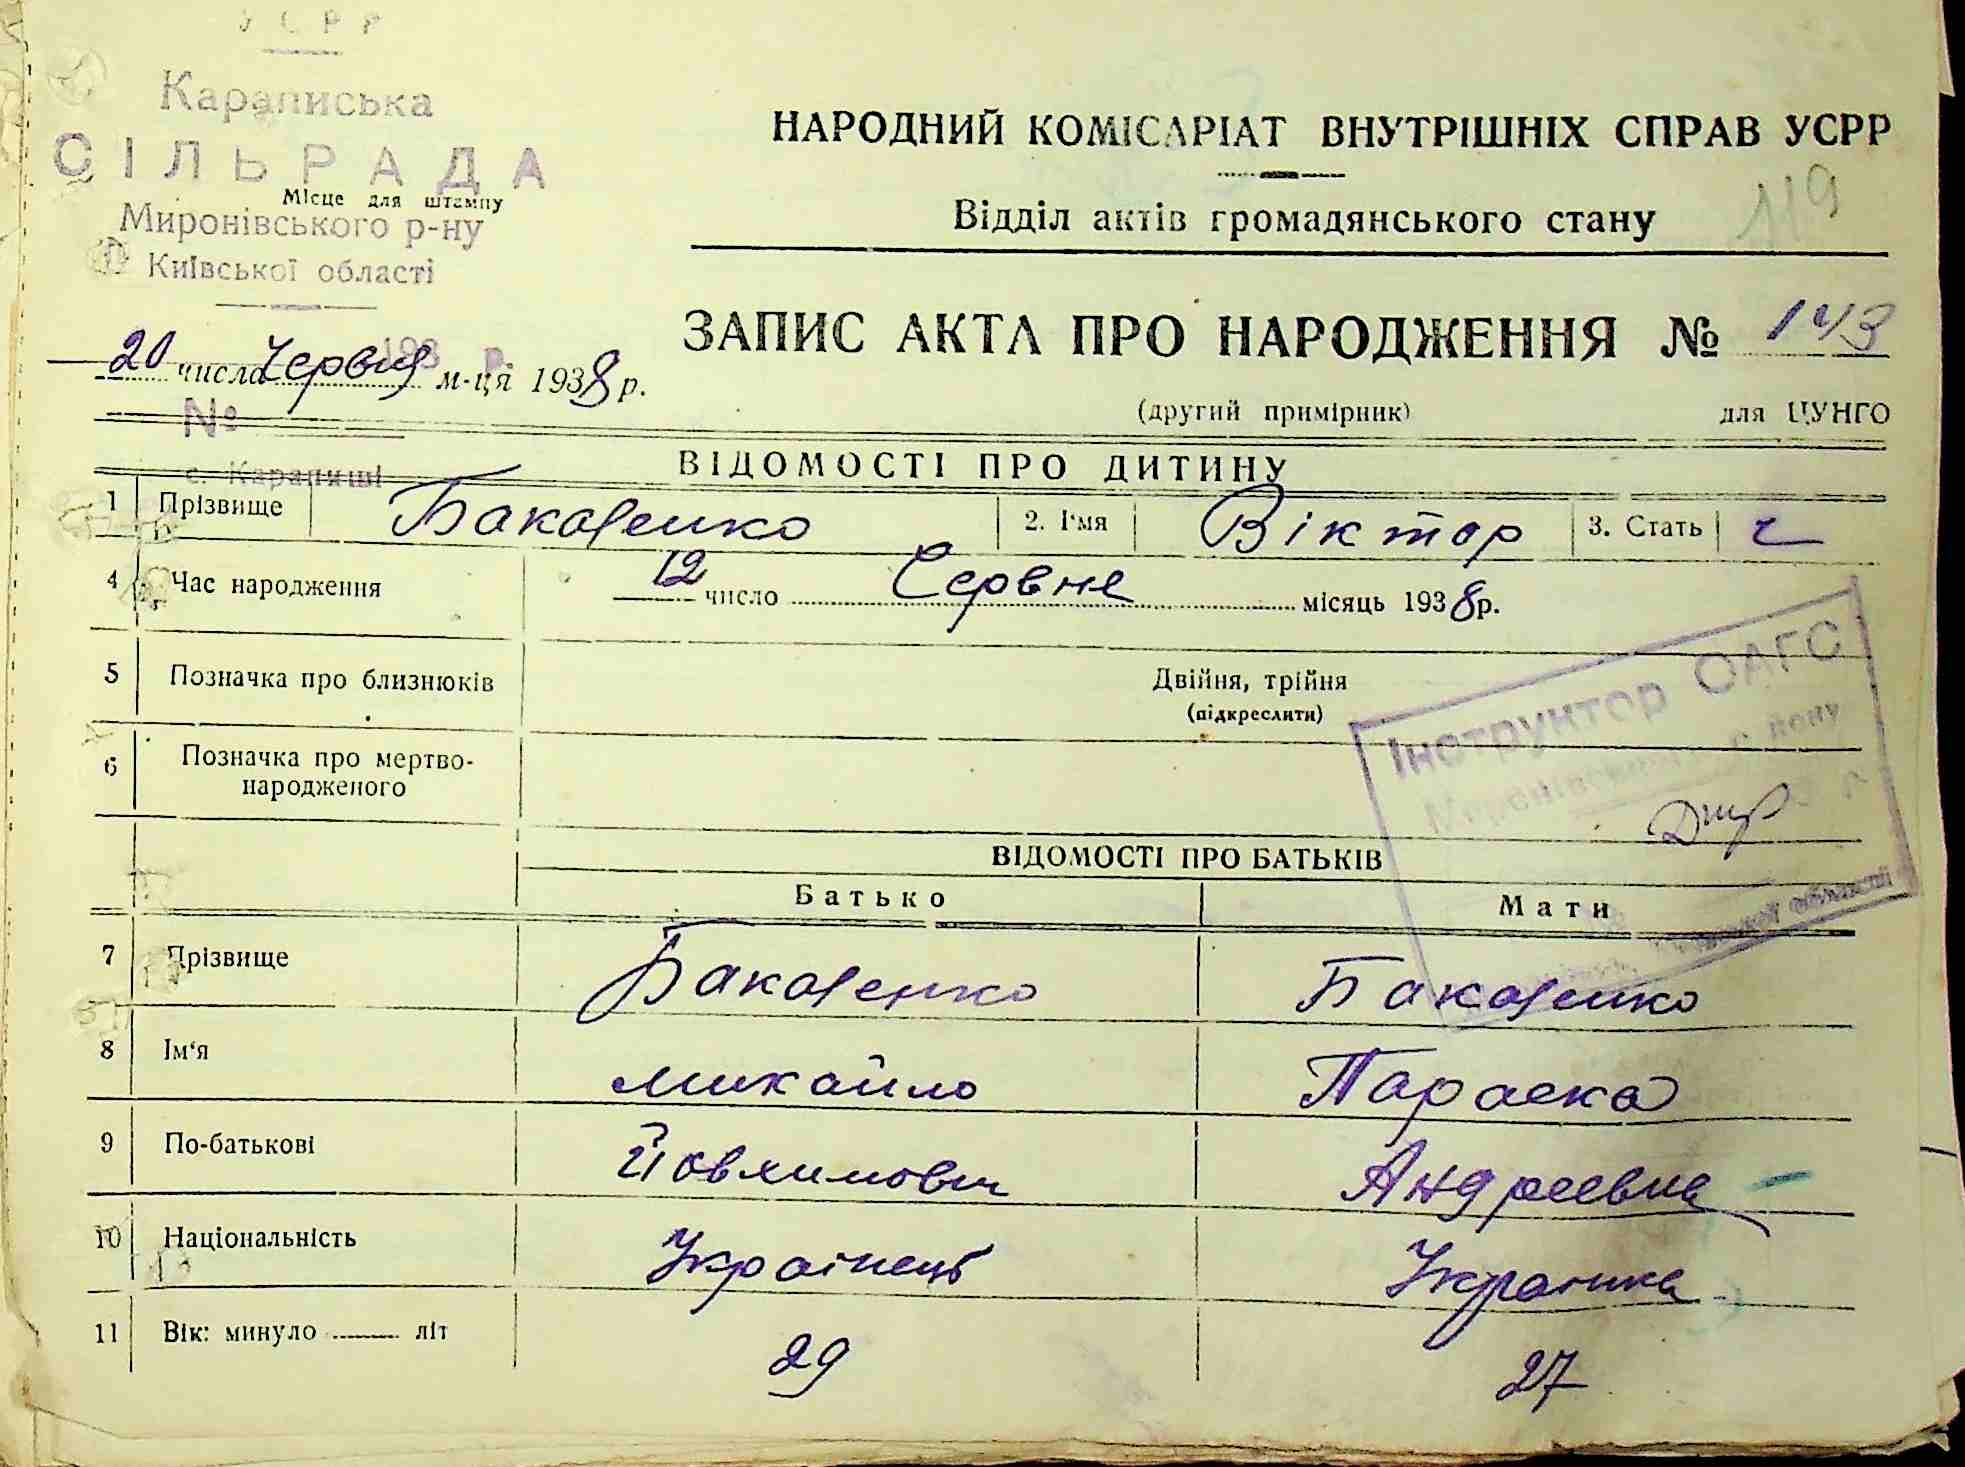 УСРР
Караписька
СІЛЬРАДА
Місце для штампу
Миронівського р-ну
Київської області
НАРОДНИЙ КОМІСАРІАТ ВНУТРІШНІХ СПРАВ УСРР
Відділ актів громадянського стану
119
ЗАПИС АКТА ПРО НАРОДЖЕННЯ № 143
193 р.
20 числа Червня м-ця 1938 р.
(другий примірник) для ЦУНГО
№
с. Карапиші
ВІДОМОСТІ ПРО ДИТИНУ
1 Прізвище Бакаленко 2. І'мя Віктор 3. Стать ч
4 Час народження 12 число Червне місяць 1938 р.
5 Позначка про близнюків Двійня, трійня
(підкреслити)
Інструктор ОАГС
6 Позначка про мертво-
народженого
ВІДОМОСТІ ПРО БАТЬКІВ
Батько Мати
7 Прізвище Бакаленко Бакаленко
8 Ім'я Михайло Параска
9 По-батькові Йовхимович Андреевна
10 Національність Українець Українка
11 Вік: минуло літ 29 27